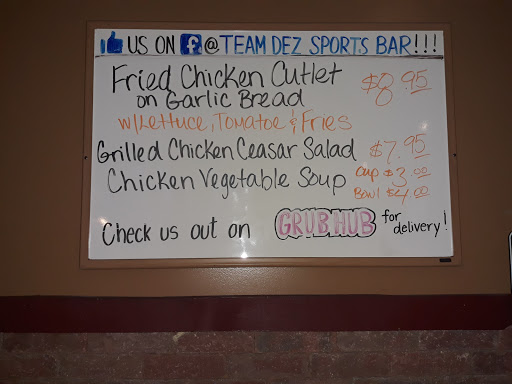 US ON f @ TEAM DEZ SPORTS BAR!!!
Fried Chicken Cutlet $8.95
on Garlic Bread
w/Lettuce, Tomatoe & Fries
Grilled Chicken Ceasar Salad $7.95
Chicken Vegetable Soup Cup $3.00
Bowl $4.00
Check us out on GRUBHUB for delivery!